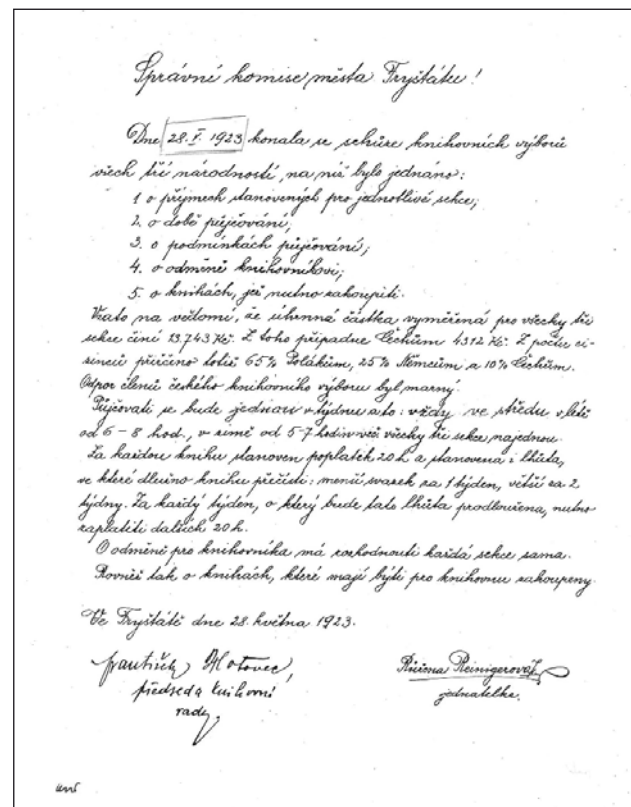 Správní komise města Fryštátu!
Dne 28.V. 1923 konala se schůze knihovních výborů
všech tří národností, na níž bylo jednáno:
1 o příjmech stanovených pro jednotlivé sekce;
2. o době půjčování;
3. o podmínkách půjčování;
4. o odměně knihovníkovi;
5. o knihách, jež nutno zakoupiti.
Vzato na vědomí, že úhrnná částka vyměřená pro všecky tři
sekce činí 13.743 Kč. Z toho připadne Čechům 4312 Kč. Z počtu ci-
zinců přičteno totiž 65% Polákům, 25% Němcům a 10% Čechům.
Odpor členů českého knihovního výboru byl marný.
Půjčovati se bude jednou v týdnu a to: vždy ve středu v létě
od 6-8 hod., v zimě od 5-7 hodin več. všecky tři sekce najednou.
Za každou knihu stanoven poplatek 20 h a stanovena i lhůta,
ve které dlužno knihu přečísti: menší svazek za 1 týden, větší za 2
týdny. Za každý týden, o který bude tato lhůta prodloužena, nutno
zaplatiti dalších 20 h.
O odměně pro knihovníka má rozhodnouti každá sekce sama.
Rovněž tak o knihách, které mají býti pro knihovnu zakoupeny.
Ve Fryštátě dne 28. května 1923.
František Hotovec,
předseda knihovní
rady.
Růžena Reinigerová
jednatelka.